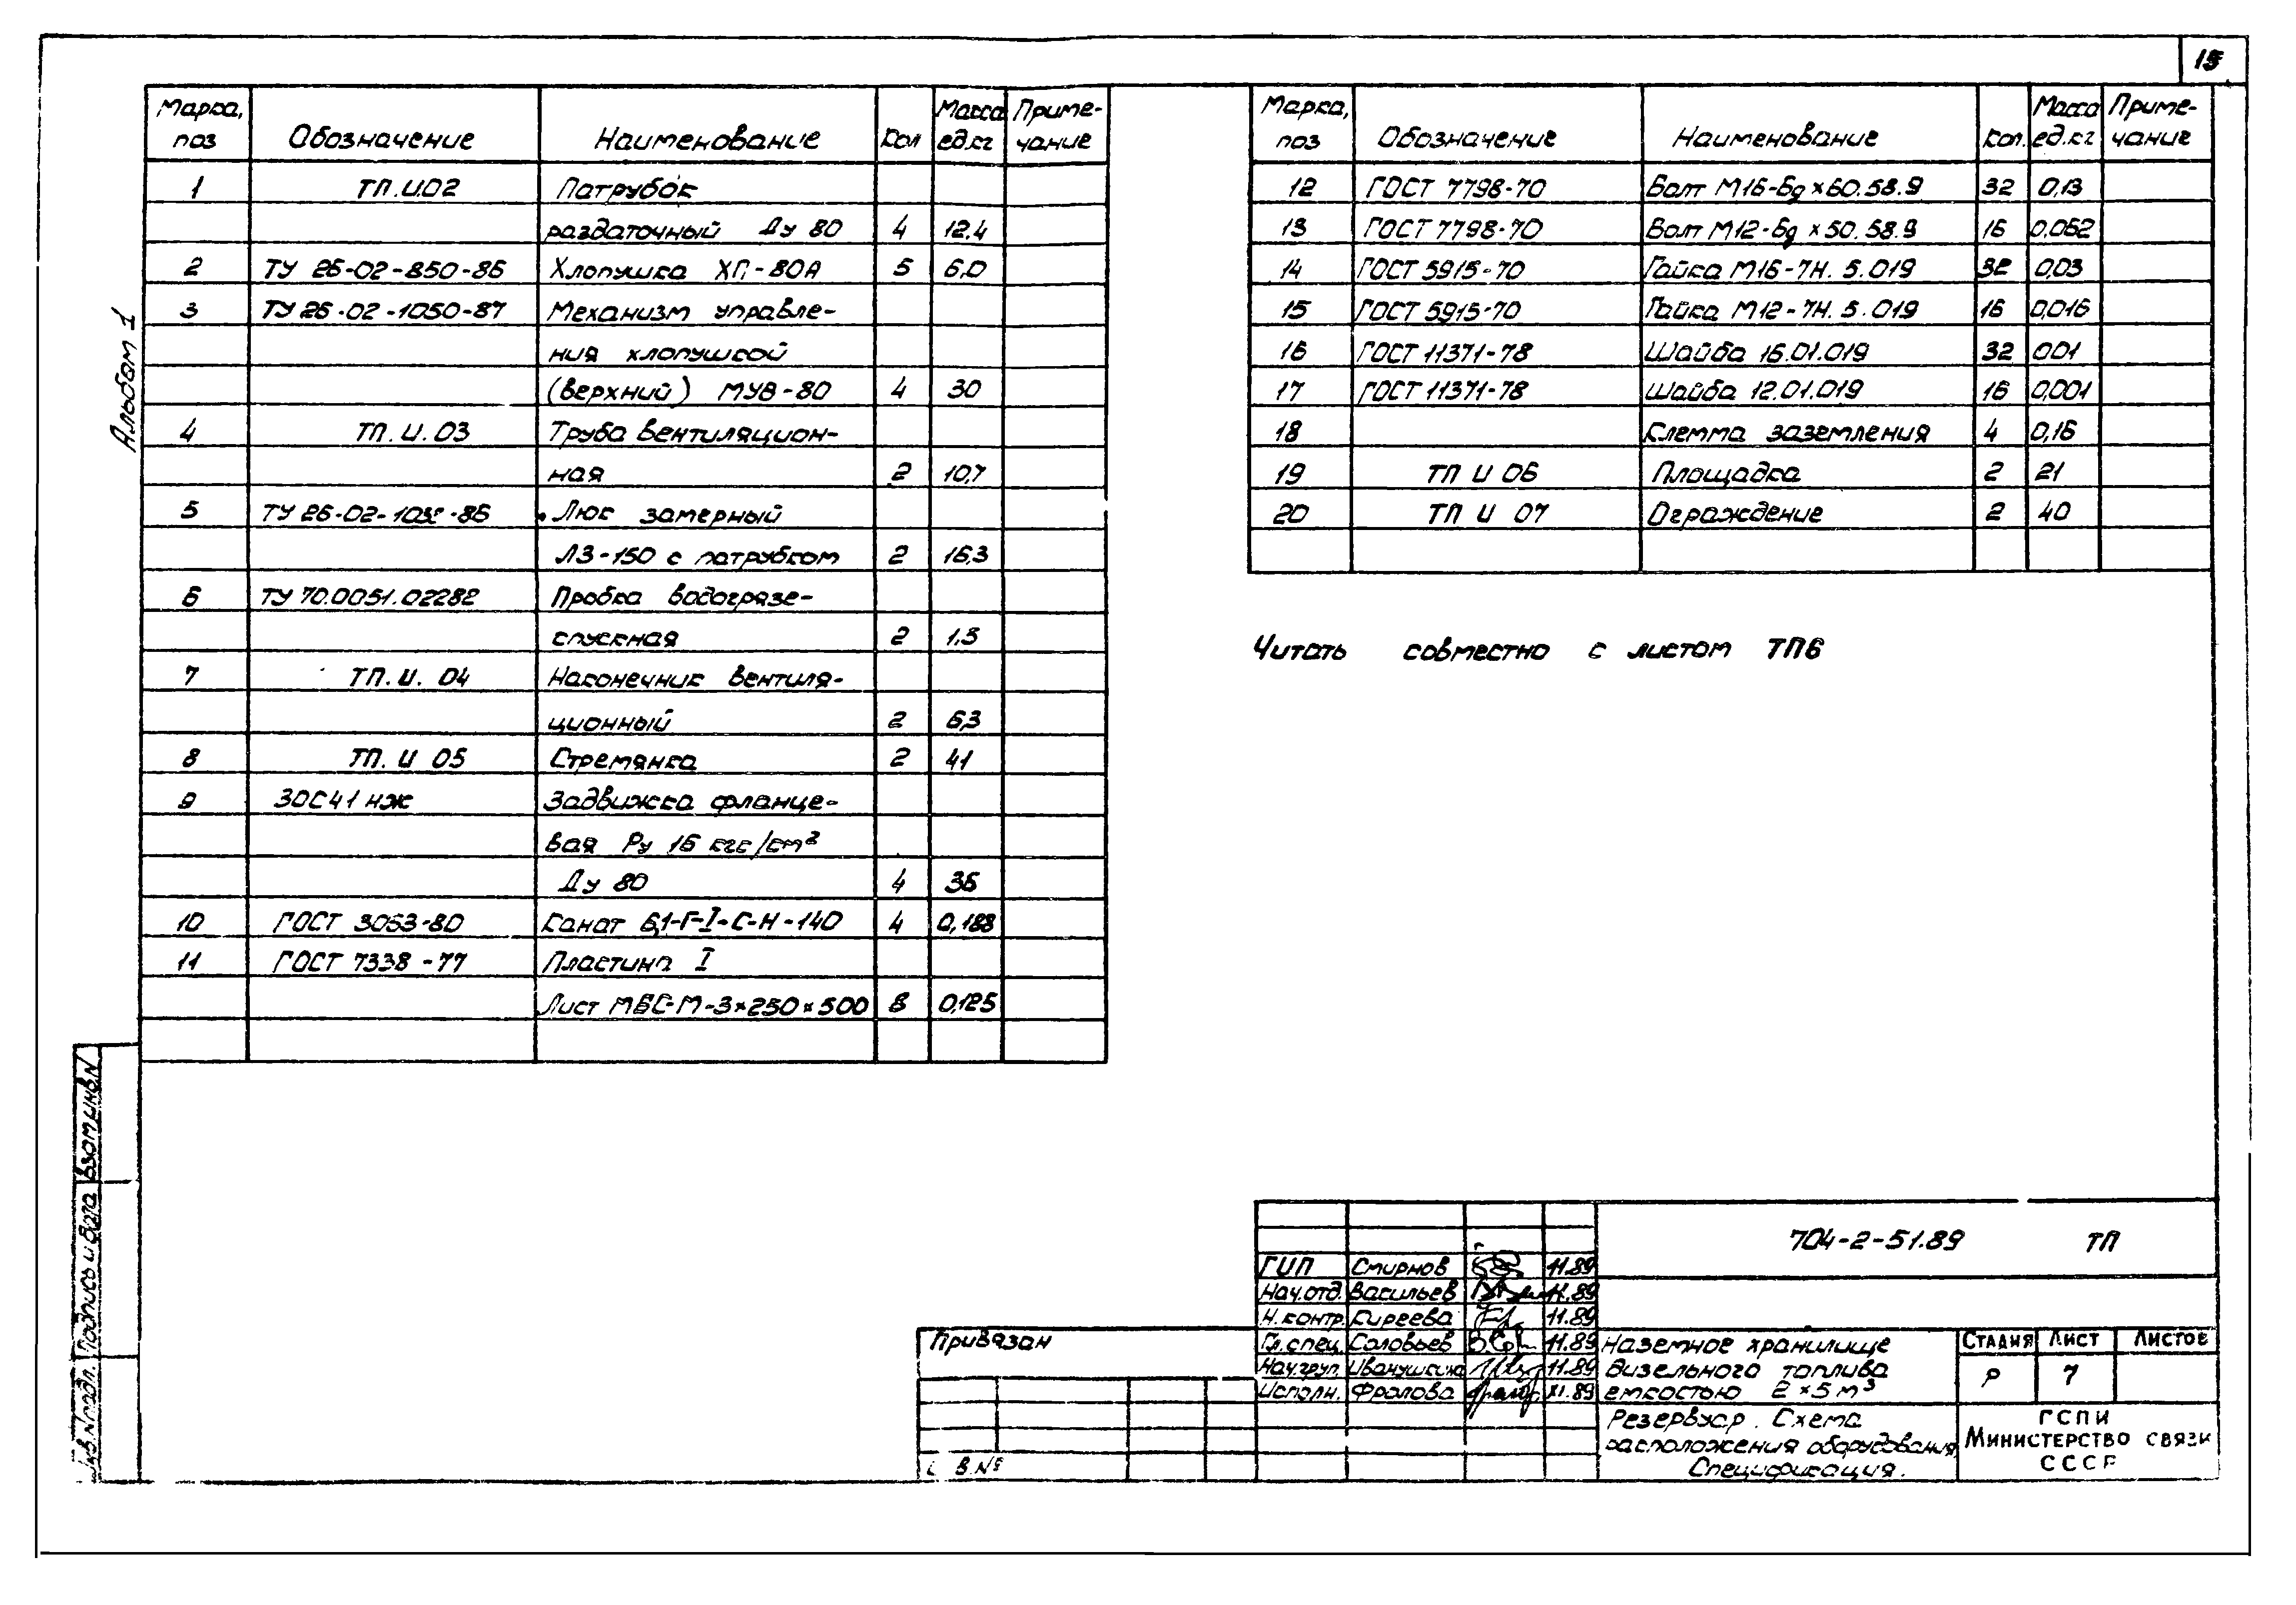 15
Альбом 1
Марка, поз Обозначение Наименование Кол Масса ед.кг Приме-чание
1 ТП.И.02 Патрубок
раздаточный Ду 80 4 12,4
2 ТУ 26-02-850-86 Хлопушка ХП-80А 5 6,0
3 ТУ 26-02-1050-87 Механизм управле-
ния хлопушкой
(верхний) МУВ-80 4 30
4 ТП.И.03 Труба вентиляцион-
ная 2 10,7
5 ТУ 26-02- -86 Люк замерный
ЛЗ-150 с патрубком 2 16,3
6 ТУ 70.0051.02282 Пробка водогрязе-
спускная 2 1.3
7 ТП.И.04 Наконечник вентиля-
ционный 2 6,3
8 ТП.И 05 Стремянка 2 41
9 30С41нж Задвижка фланце-
вая Ру 16 кгс/см²
Ду 80 4 36
10 ГОСТ 3063-80 Канат 6,1-Г-I-С-Н-140 4 0,188
11 ГОСТ 7338-77 Пластина I
Лист МБС-М-3×250×500 8 0,125
Марка, поз Обозначение Наименование Кол. Масса ед.кг Приме-чание
12 ГОСТ 7798-70 Болт М16-6g×60.58.9 32 0,13
13 ГОСТ 7798-70 Болт М12-6g×50.58.9 16 0,062
14 ГОСТ 5915-70 Гайка М16-7Н.5.019 32 0,03
15 ГОСТ 5915-70 Гайка М12-7Н.5.019 16 0,016
16 ГОСТ 11371-78 Шайба 16.01.019 32 001
17 ГОСТ 11371-78 Шайба 12.01.019 16 0,001
18 Клемма заземления 4 0,16
19 ТП И 06 Площадка 2 21
20 ТП И 07 Ограждение 2 40
Читать совместно с листом ТП6
Взам инв.N
Подпись и дата
Инв.N подл.
704-2-51.89 ТП
ГИП Смирнов 11.89
Нач.отд. Васильев 11.89
Н.контр. Киреева 11.89
Гл.спец. Соловьев 11.89
Нач.груп. Иванушкина 11.89
Исполн. Фролова XI.89
Привязан
В.№
Наземное хранилище
дизельного топлива
емкостью 2×5м³
Стадия Лист Листов
Р 7
Резервуар. Схема
расположения оборудования.
Спецификация.
ГСПИ
Министерство связи
СССР